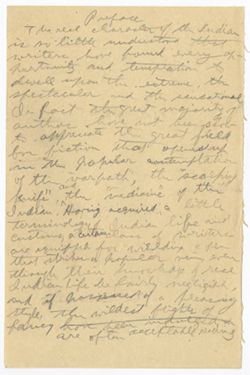 Preface
The real character of the Indian
is so little understood that
writers have found every op-
portunity and temptation to
dwell upon the extreme, the
spectacular and the sensational
In fact the great majority of
authors have not been slow
to appreciate the great field
for fiction that opens up
in the popular contemplation
of the warpath, the scalping
knife and the "medicine" of the
Indian. Having acquired a little
terminology of Indian life and
customs a certain of writers
are equipped for wielding a pen
that strikes a popular even
though their knowledge of real
Indian life be fairly negligible,
and if possessed of a pleasing
style, the wildest flights of
fancy have been indulged in
are often acceptable reading